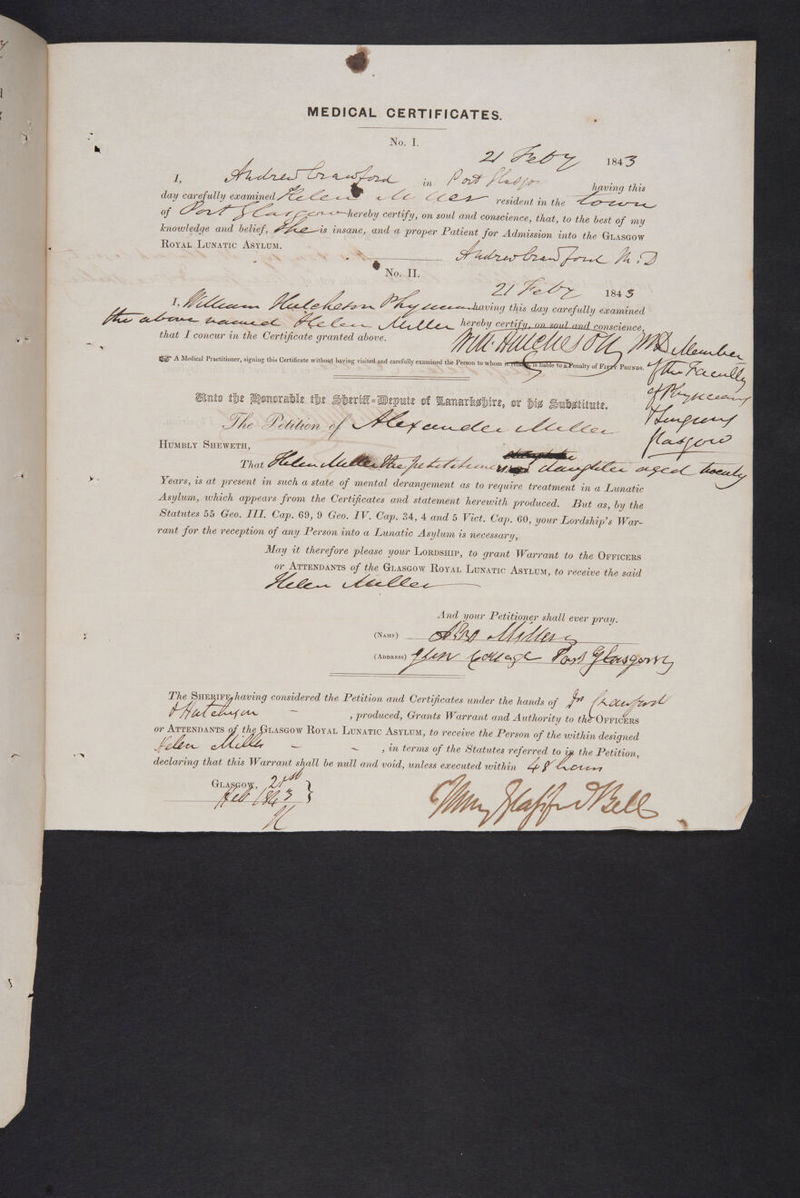 MEDICAL CERTIFICATES.
No. I.
21 Feby 1843
I, Andrew Crawford in Port Glasgow having this
day carefully examined Helen Miller resident in the Town
of Port Glasgow hereby certify, on soul and conscience, that, to the best of my
knowledge and belief, She is insane, and a proper Patient for Admission into the GLASGOW
ROYAL LUNATIC ASYLUM.
Andrew Crawford M.D
No. II.
21 Feby 1843
I, William Hutcheson Physician having this day carefully examined
the above named Helen Miller hereby certify, on soul and conscience,
that I concur in the Certificate granted above.
Wm. Hutcheson MD Member
of the Faculty
of Physicians
Surgeons
Glasgow
☞ A Medical Practitioner, signing this Certificate without having visited and carefully examined the Person to whom it relates, is liable to a Penalty of FIFTY POUNDS.
Unto the Honorable the Sheriff-Depute of Lanarkshire, or his Substitute.
The Petition of Alexander Miller
HUMBLY SHEWETH,
That Helen Miller the petitioners daughter aged twenty
Years, is at present in such a state of mental derangement as to require treatment in a Lunatic
Asylum, which appears from the Certificates and statement herewith produced. But as, by the
Statutes 55 Geo. III. Cap. 69, 9 Geo. IV. Cap. 34, 4 and 5 Vict. Cap. 60, your Lordship's War-
rant for the reception of any Person into a Lunatic Asylum is necessary,
May it therefore please your LORDSHIP, to grant Warrant to the OFFICERS
or ATTENDANTS of the GLASGOW ROYAL LUNATIC ASYLUM, to receive the said
Helen Miller
And your Petitioner shall ever pray.
(NAME) Miller
(ADDRESS) Glen Cottage Port Glasgow
The SHERIFF, having considered the Petition and Certificates under the hands of Dr Crawford
& Hutcheson , produced, Grants Warrant and Authority to the OFFICERS
or ATTENDANTS of the GLASGOW ROYAL LUNATIC ASYLUM, to receive the Person of the within designed
Helen Miller , in terms of the Statutes referred to in the Petition,
declaring that this Warrant shall be null and void, unless executed within 48 hours
GLASGOW, 21st
Feb 1843
Henry Glassford Bell